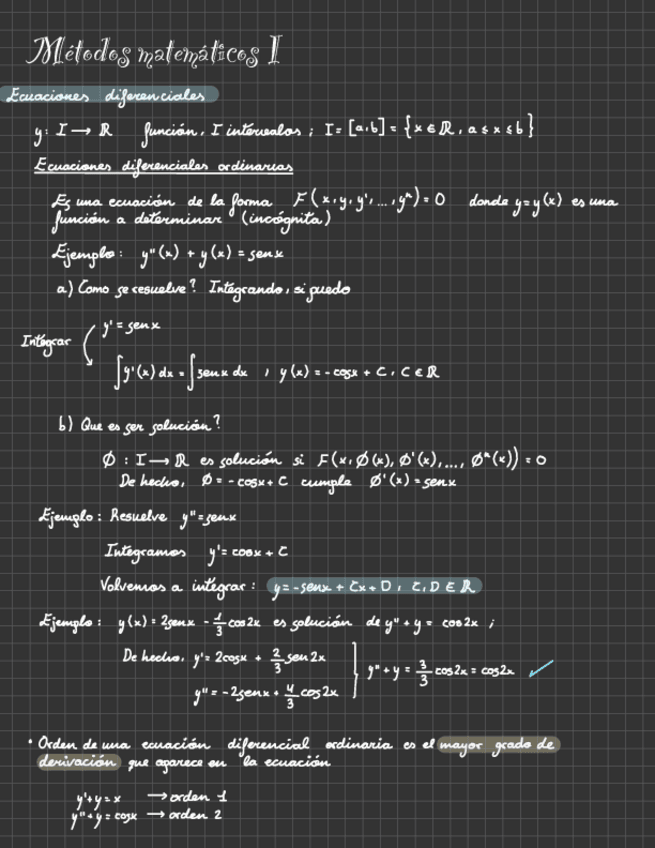 Métodos matemáticos I
Ecuaciones diferenciales
y: I → ℝ función, I intervalos ; I = [a,b] = {x ∈ ℝ, a ≤ x ≤ b}
Ecuaciones diferenciales ordinarias
Es una ecuación de la forma F(x, y, y', ..., yⁿ) = 0 donde y = y(x) es una
función a determinar (incógnita)
Ejemplo: y''(x) + y(x) = senx
a) Como se resuelve? Integrando, si puedo
y' = senx
Integrar
∫y'(x) dx = ∫senx dx , y(x) = -cosx + C, C ∈ ℝ
b) Que es ser solución?
Ø : I → ℝ es solución si F(x, Ø(x), Ø'(x), ..., Øⁿ(x)) = 0
De hecho, Ø = -cosx + C cumple Ø'(x) = senx
Ejemplo: Resuelve y'' = senx
Integramos y' = cosx + C
Volvemos a integrar: y = -senx + Cx + D, C, D ∈ ℝ
Ejemplo: y(x) = 2senx - 1/3 cos2x es solución de y'' + y = cos2x ;
De hecho, y' = 2cosx + 2/3 sen2x
y'' + y = 3/3 cos2x = cos2x ✓
y'' = -2senx + 4/3 cos2x
· Orden de una ecuación diferencial ordinaria es el mayor grado de
derivación que aparece en la ecuación
y' + y = x → orden 1
y'' + y = cosx → orden 2